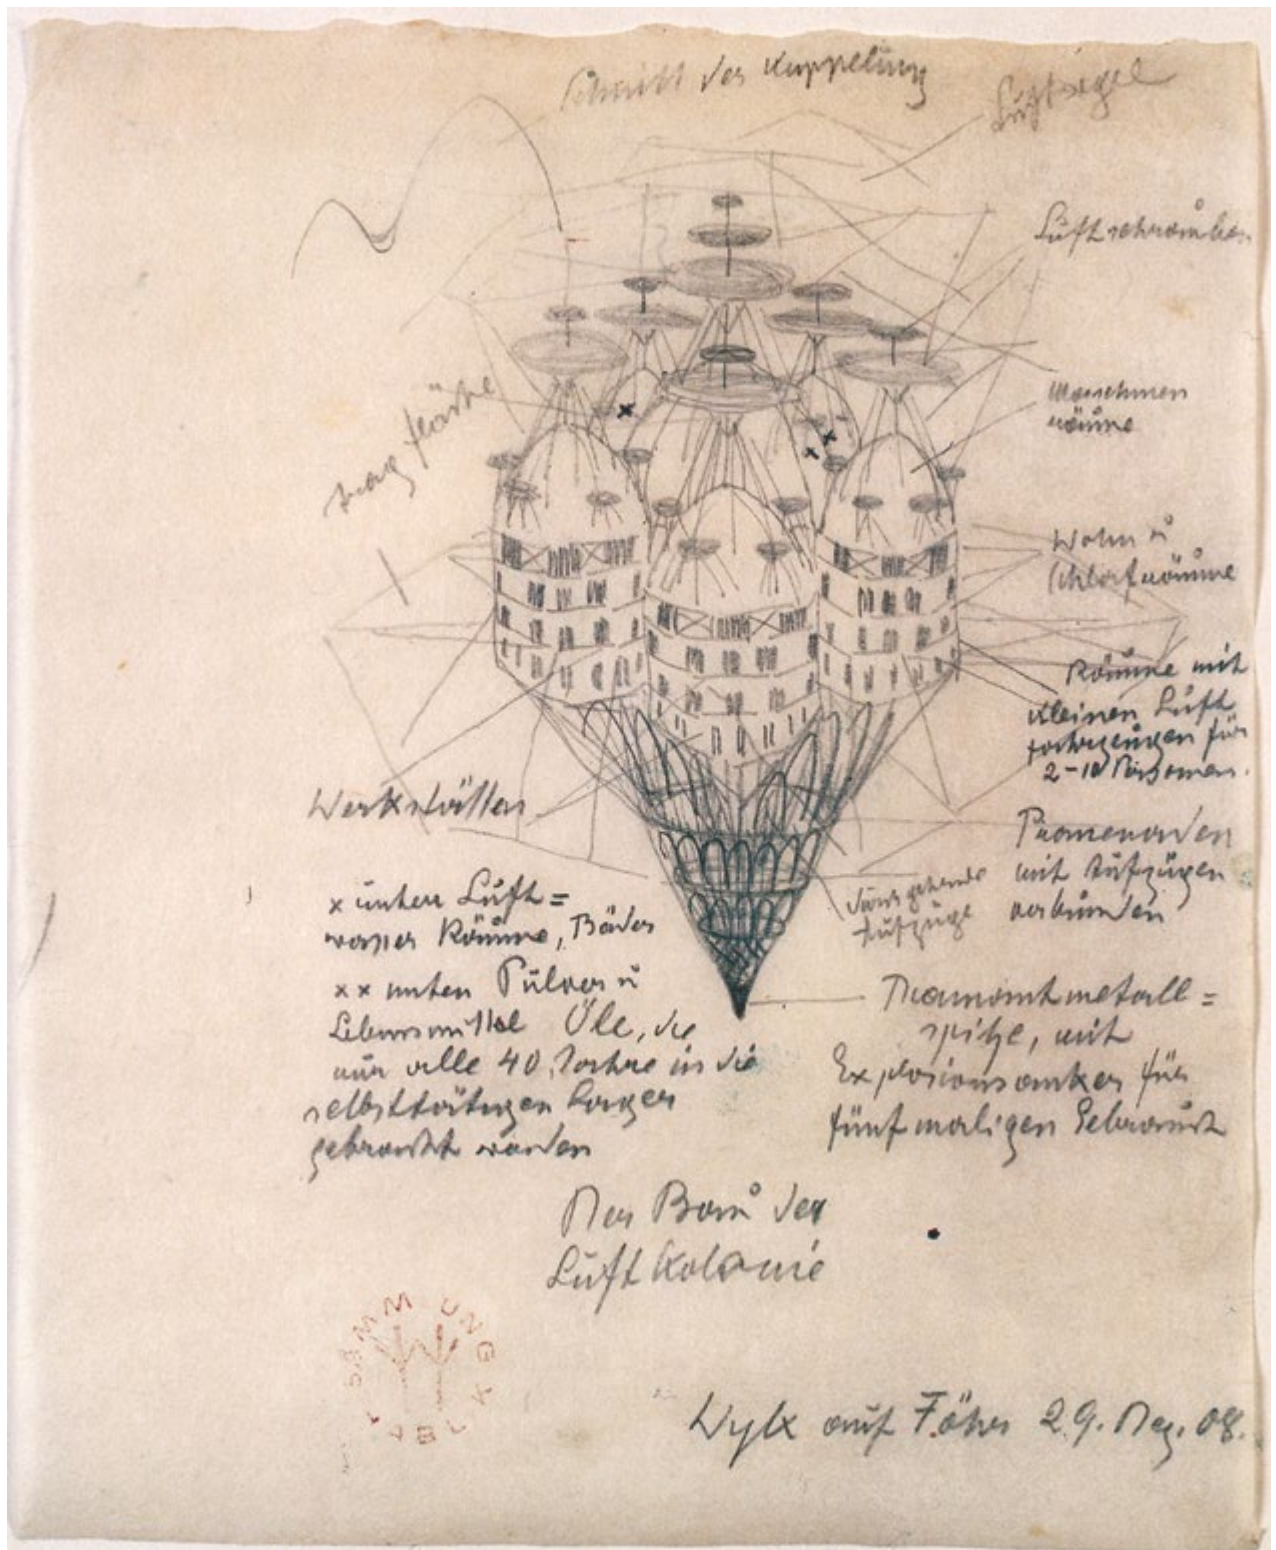 Schnitt der Kuppelung
Luftsegel
Luftschrauben
Maschinen
räume
Tragfläche
Wohn u
Schlafräume
Räume mit
kleinen Luft
fahrzeugen für
2-10 Personen.
Werkstätten
Promenaden
mit Aufzügen
verbunden
x unten Luft=
wasser Räume, Bäder
Aufzüge
xx unten Pulver u
Lebensmittel Öle, die
nur alle 40 Jahre in die
selbsttätigen Lager
gebracht werden
Diamantmetall=
spitze, mit
Explosionsanker für
fünfmaligen Gebrauch
Der Bau der
Luftkolonie
SAMMLUNG
ABEL
Wyk auf Föhr 29. Dez. 08.